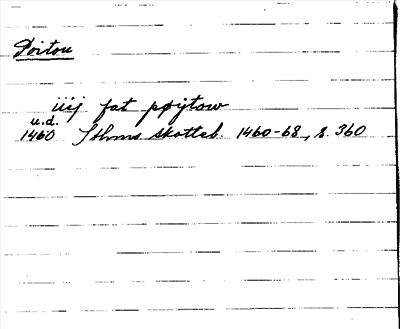 Poitou
iiij fat pøijtow
u.d.
1460 Sthms skotteb. 1460-68, s. 360